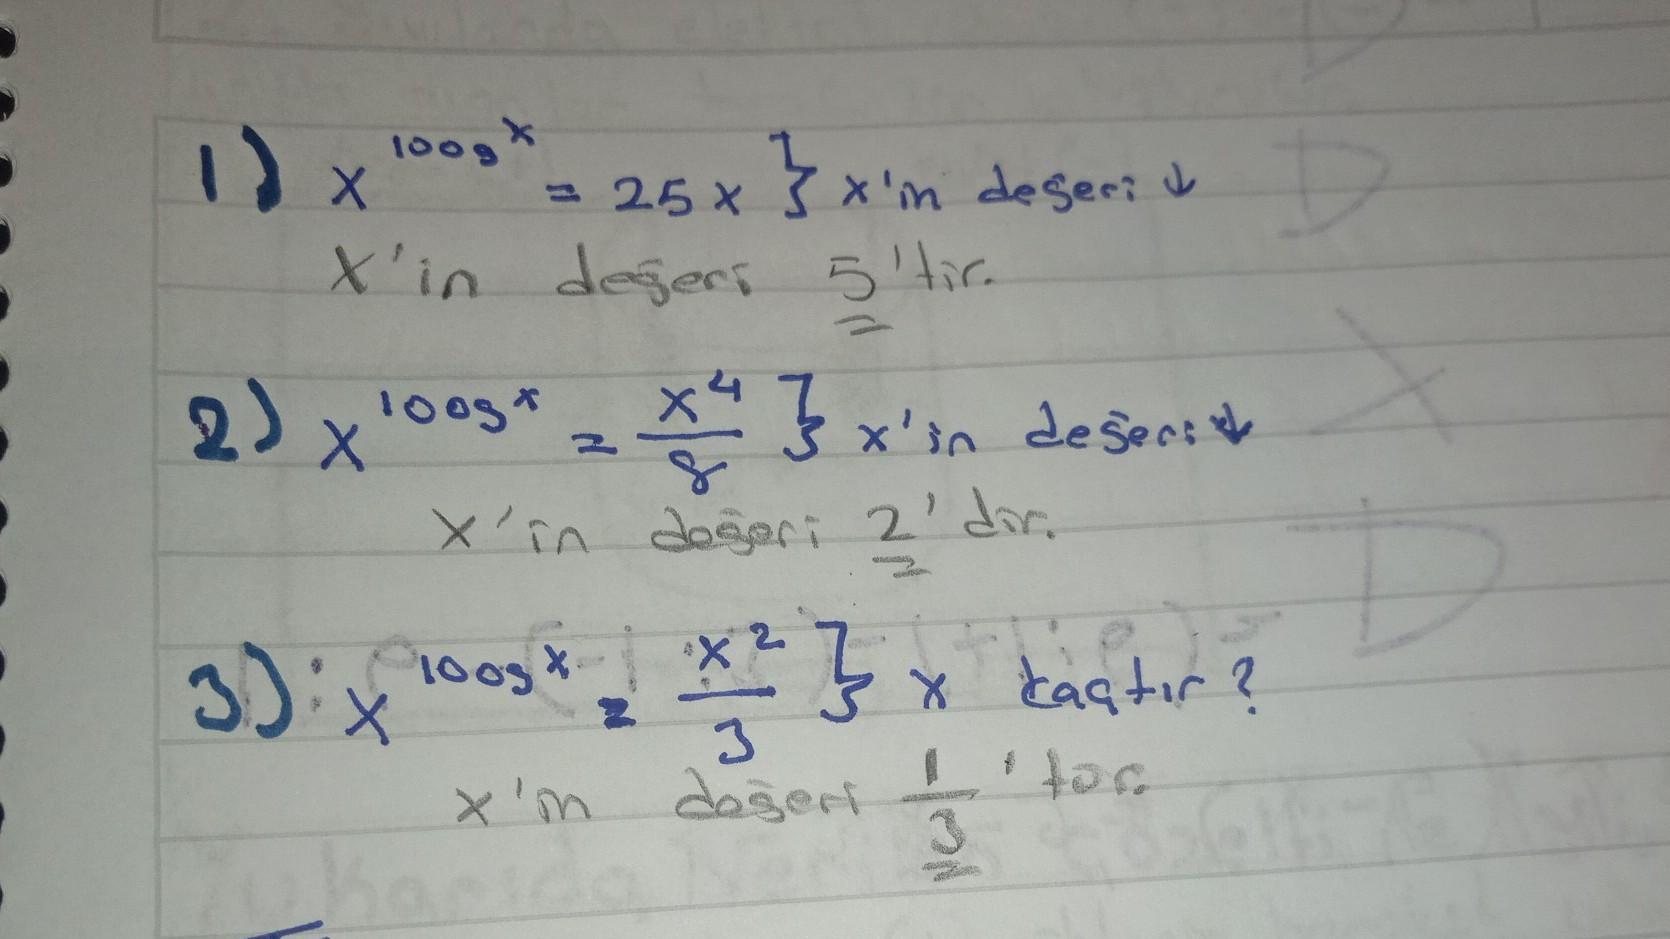 1) x^100g^x = 25x } x'in değeri ↓
x'in değeri 5'tir.
2) x^100g^x = x^4/8 } x'in değeri ↓
x'in değeri 2'dir.
3) x^100g^x = x^2/3 } x kaçtır?
x'in değeri 1/3'tür.